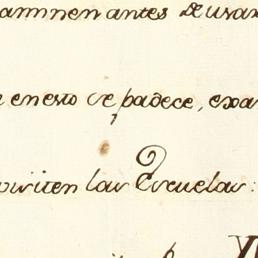 aminen antes de usar
en esto se padece, exa
visiten las Escuelas: